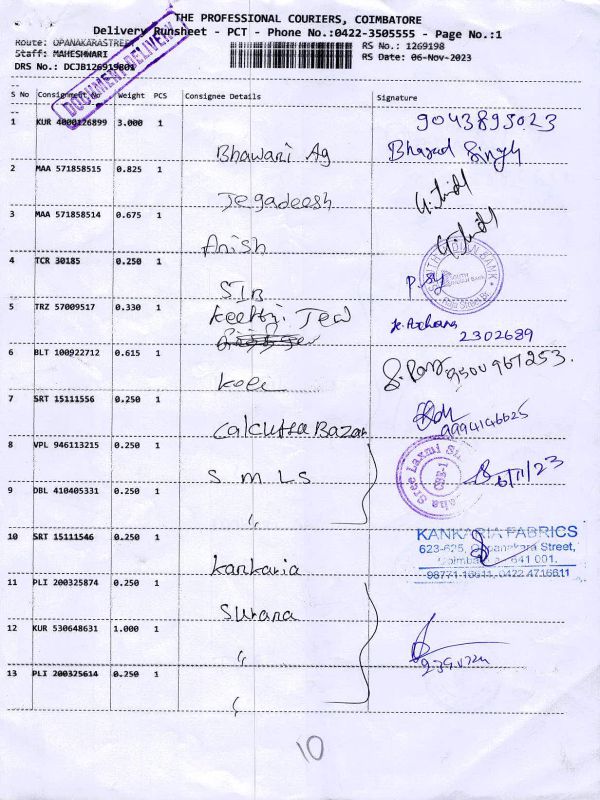 THE PROFESSIONAL COURIERS, COIMBATORE
Delivery Runsheet - PCT - Phone No.:0422-3505555 - Page No.:1
Route: OPANAKARASTREET
RS No.: 1269198
Staff: MAHESHWARI
RS Date: 06-Nov-2023
DRS No.: DCJB126919801
DOCUMENT DELIVERY
S No Consignment No Weight PCS Consignee Details Signature
1 KUR 4000126899 3.000 1
9043895023
Bhawani Ag
Bharad Singh
2 MAA 571858515 0.825 1
Jegadeesh
3 MAA 571858514 0.675 1
Anish
4 TCR 30185 0.250 1
SOUTH INDIAN BANK
SIB
5 TRZ 57009517 0.330 1
Keerthi Jew
2302689
6 BLT 100922712 0.615 1
9500967253.
7 SRT 15111556 0.250 1
9994146625
Calcutta Bazar
8 VPL 946113215 0.250 1
Sree Laxmi
CBE-1
S M L S
6/11/23
9 DBL 410405331 0.250 1
"
10 SRT 15111546 0.250 1
KANKARIA FABRICS
623-625, Oppanakara Street,
Coimbatore 641 001.
98771 16611, 0422 4716611
Kankaria
11 PLI 200325874 0.250 1
Surana
12 KUR 530648631 1.000 1
"
13 PLI 200325614 0.250 1
"
10